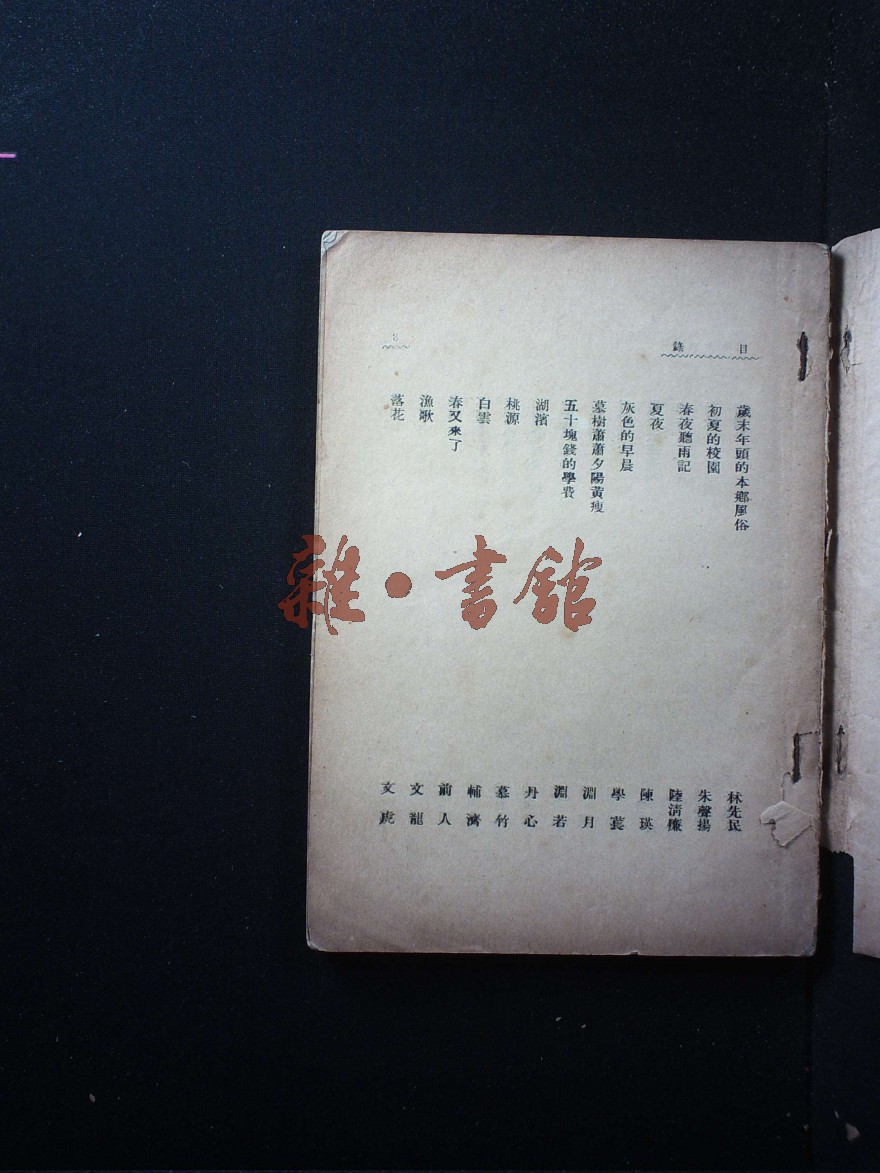 目錄
歲末年頭的本鄉風俗 林先民
初夏的校園 朱聲揚
春夜聽雨記 陸淸廉
夏夜 陳瑛
灰色的早晨 學蓑
墓樹蕭蕭夕陽黃瘦 淵月
五十塊錢的學費 淵若
湖濱 丹心
桃源 慕竹
白雲 輔濟
春又來了 前人
漁歌 文龍
落花 文虎
雜·書館